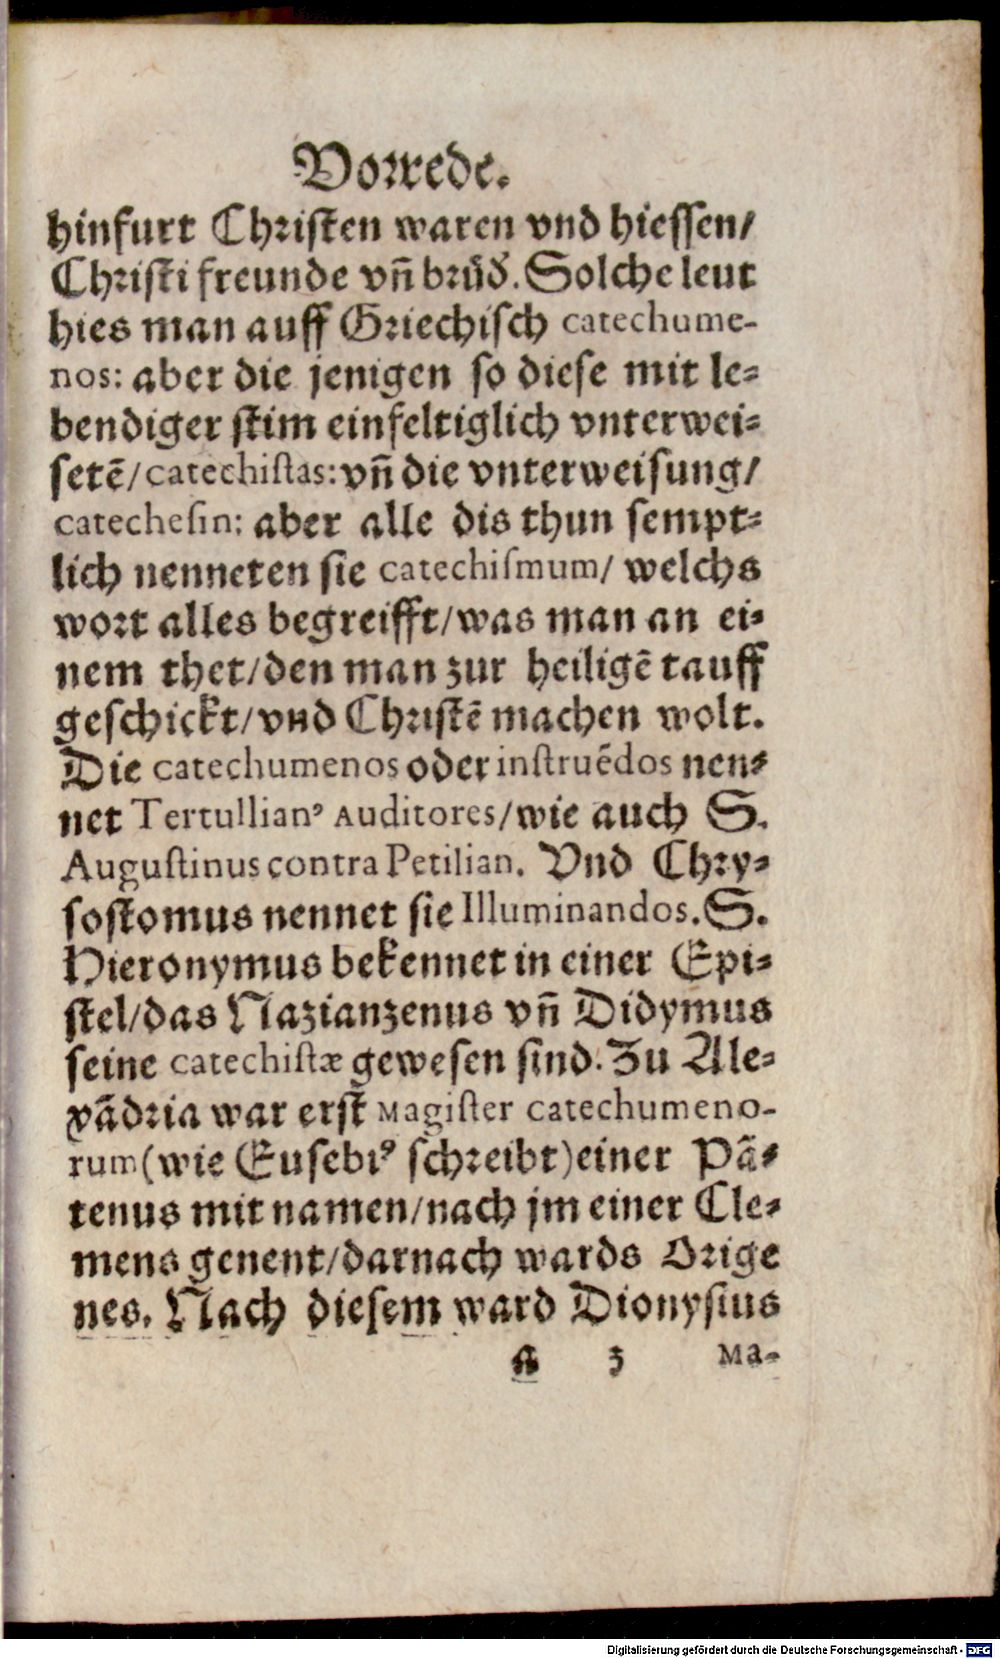 Vorrede.
hinfurt Christen waren vnd hiessen/
Christi freunde vñ brüd̕. Solche leut
hies man auff Griechisch catechume-
nos: aber die jenigen so diese mit le-
bendiger stim einfeltiglich vnterwei-
setē/catechistas: vñ die vnterweisung/
catechesin: aber alle dis thun sempt-
lich nenneten sie catechismum/ welchs
wort alles begreifft/was man an ei-
nem thet/den man zur heiligē tauff
geschickt/vnd Christē machen wolt.
Die catechumenos oder instruēdos nen-
net Tertullianꝰ Auditores/wie auch S.
Augustinus contra Petilian. Vnd Chry-
sostomus nennet sie Illuminandos. S.
Hieronymus bekennet in einer Epi-
stel/das Nazianzenus vñ Didymus
seine catechistæ gewesen sind. Zu Ale-
xādria war erst Magister catechumeno-
rum (wie Eusebiꝰ schreibt) einer Pā-
tenus mit namen/nach jm einer Cle-
mens genent/darnach wards Orige
nes. Nach diesem ward Dionysius
a 3 Ma-
Digitalisierung gefördert durch die Deutsche Forschungsgemeinschaft - DFG